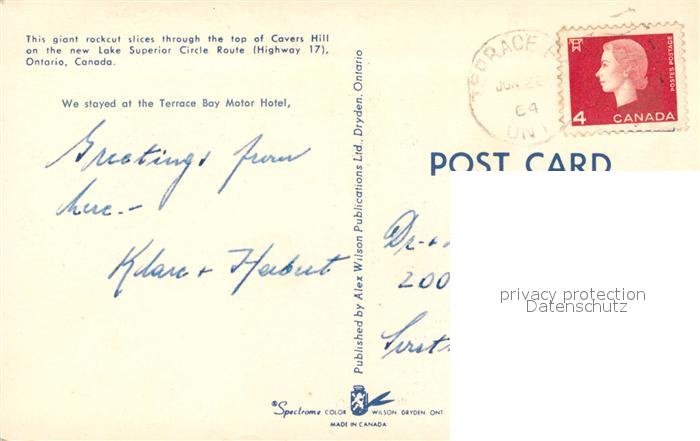 This giant rockcut slices through the top of Cavers Hill
on the new Lake Superior Circle Route (Highway 17),
Ontario, Canada.
We stayed at the Terrace Bay Motor Hotel,
Greetings from
here -
Klare + Herbert
Published by Alex Wilson Publications Ltd., Dryden, Ontario
TERRACE
JUN
64
ONT
4
CANADA
POSTES POSTAGE
POST CARD
Dr. +
200
privacy protection
Datenschutz
Spectrome COLOR WILSON DRYDEN ONT
MADE IN CANADA